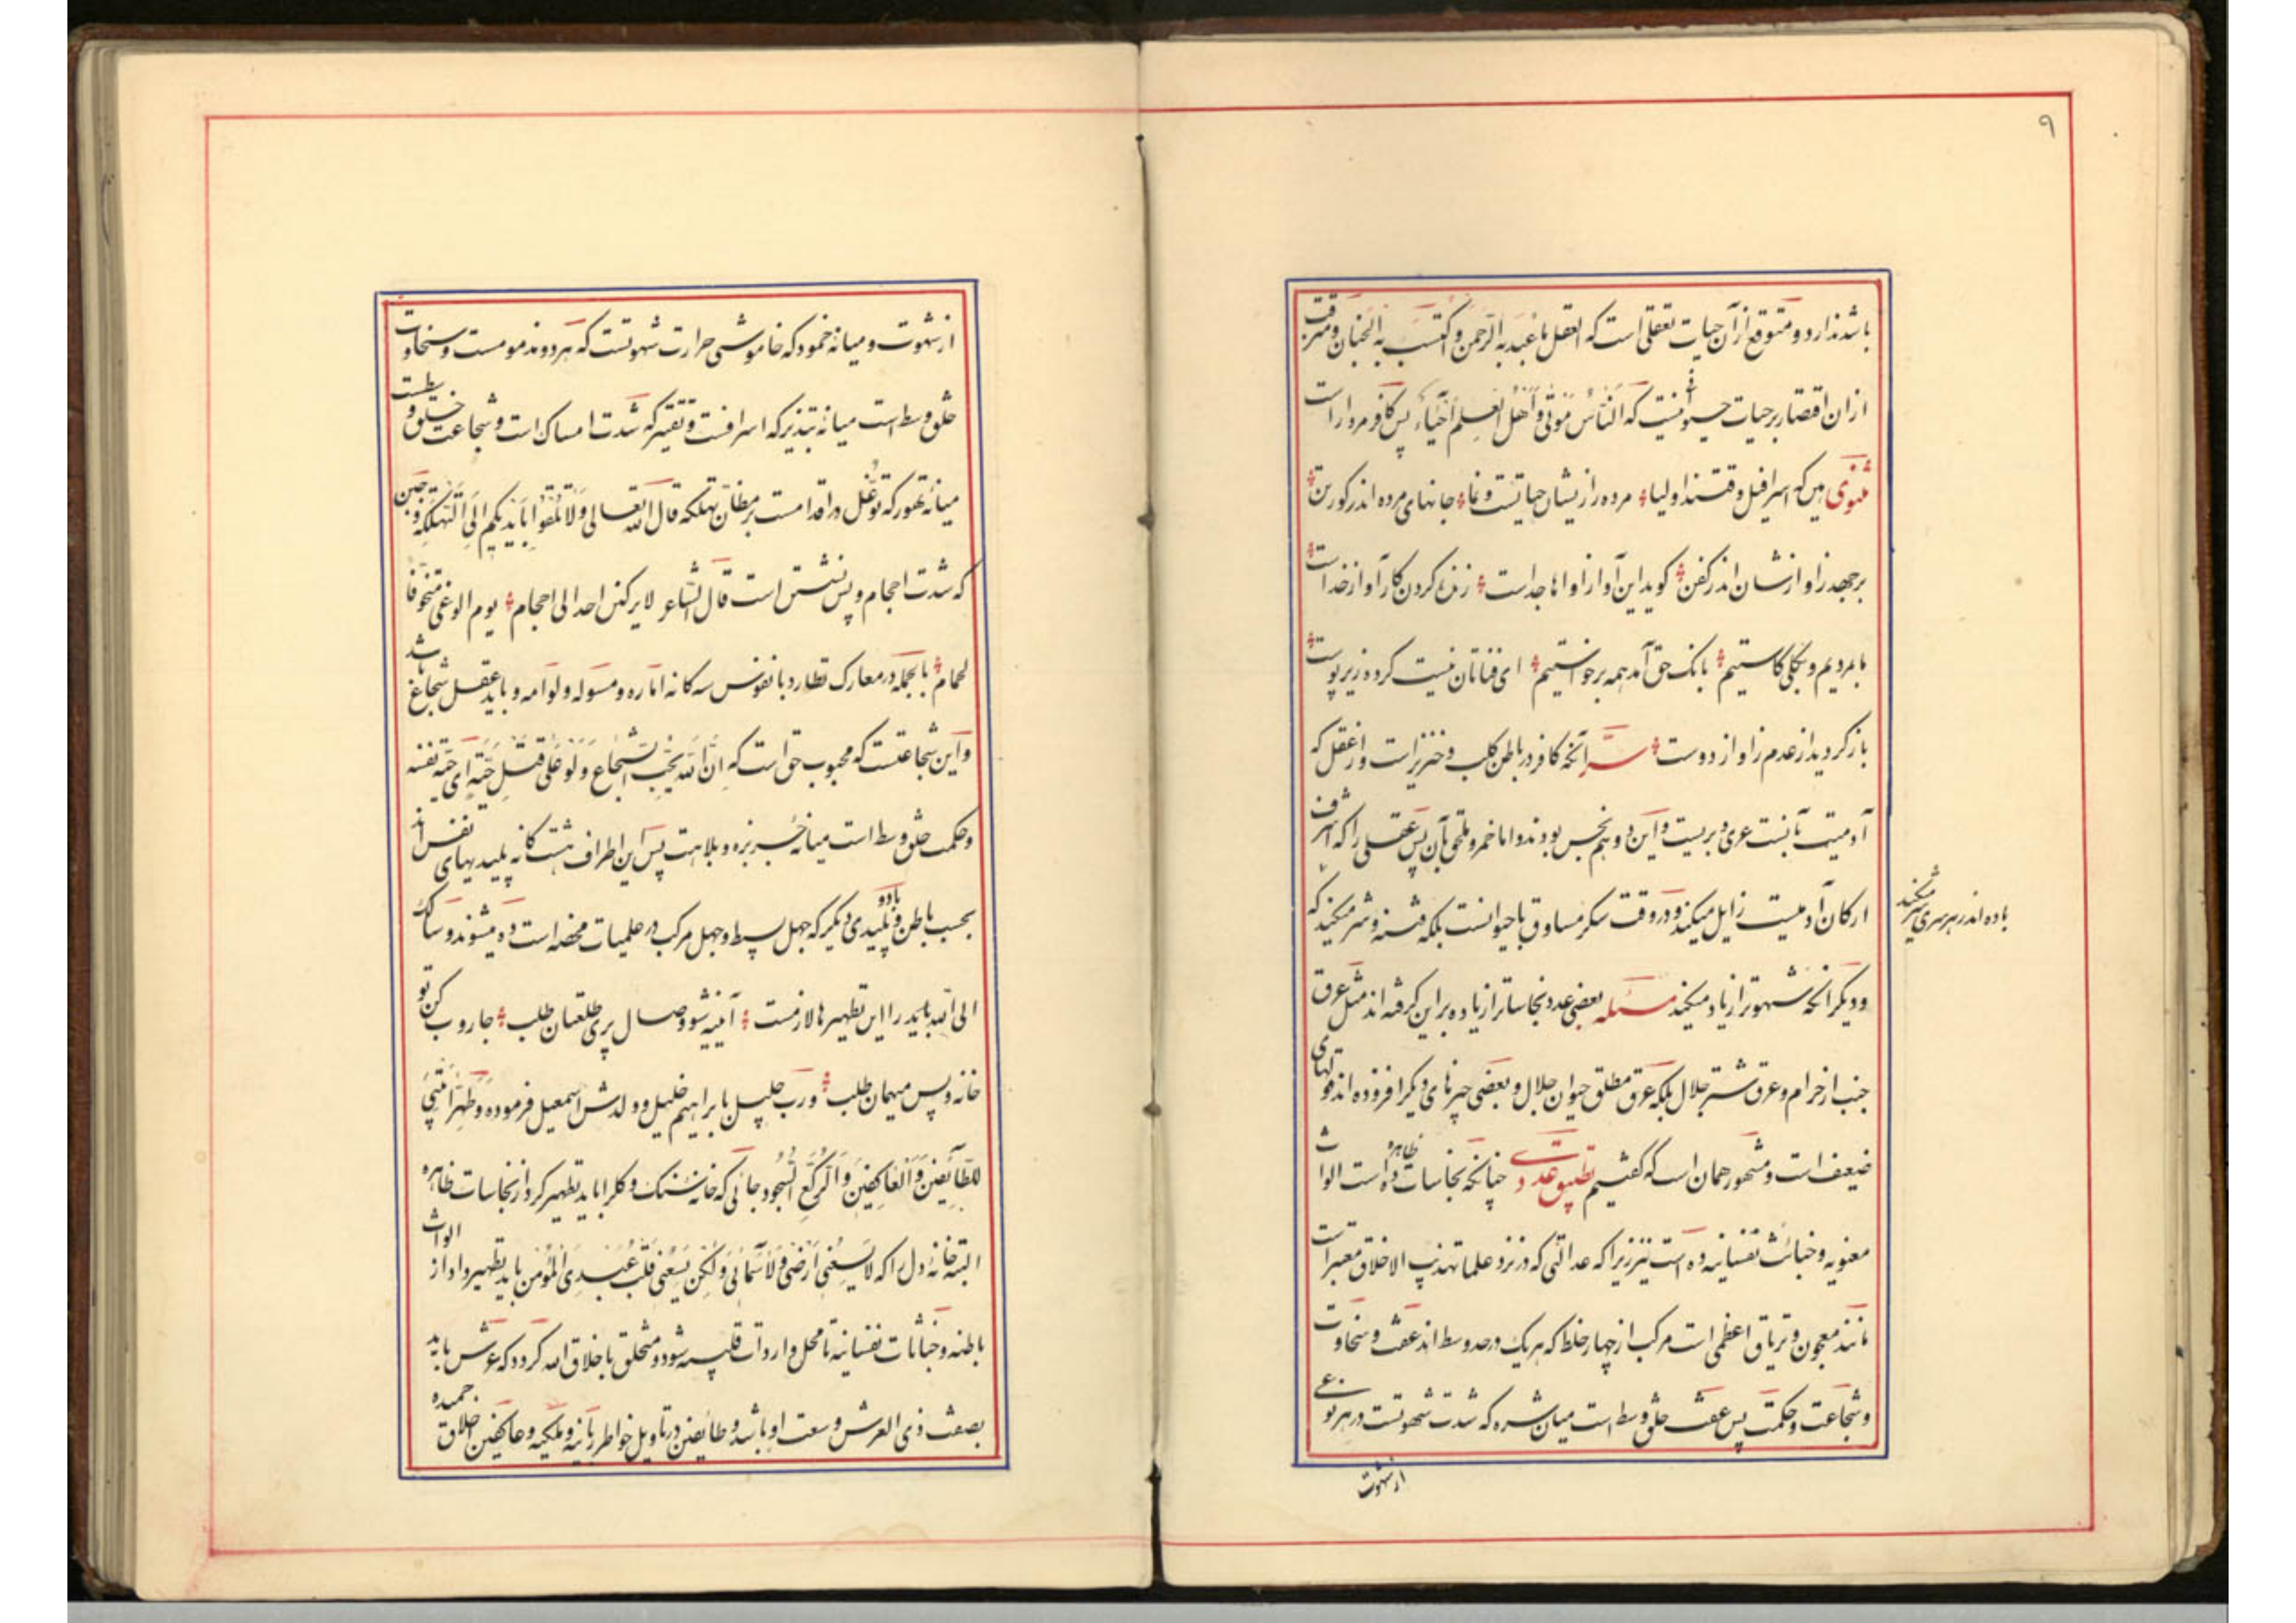 ۹
باشد ندارد و متوقع از آن حیات تعقلی است که العقل ما عبد به الرحمن و اکتسب به الجنان و مترقب
از ان اقتصار بر حیات حیوانی نیست که الناس موتی و اهل العلم احیاء پس کافر مردار است
مثنوی هین که اسرافیل وقتند اولیا مرده را زیشان حیاتست و نما جانهای مرده اندر گور تن
برجهد ز آوازشان اندر کفن گوید این آواز ز آواها جداست زنده کردن کار آواز خداست
ما بمردیم و بکلی کاستیم بانک حق آمد همه برخواستیم ای فناتان نیست کرده زیر پوست
باز گردید از عدم ز آواز دوست سر آنکه کافر در باطن کلب و خنزیر است و از عقل که
آدمیت بآنست عری و بریست و این دو هم نجس بودند و اما خمر و ملحق بآن پس عقلی را که اشرف
ارکان آدمیت زایل میکند و در وقت سکر مساوق با حیوانست بلکه فتنه و شر میکند که
باده اندر هر سری شر میکند
و دیگر آنکه شهوترا زیاد میکند مسئله بعضی عدد نجاساترا زیاده بر این گرفته اند مثل عرق
جنب از حرام و عرق شتر جلال بلکه عرق مطلق حیوان جلال و بعضی چیزهای دیگر افزوده اند و قولهای
ضعیف است و مشهور همان است که گفتیم تطبیق عددی چنانکه نجاسات ظاهره ده است الواث
معنویه و خبائث نفسانیه ده است نیز زیرا که عدالتی که در نزد علما تهذیب الاخلاق معتبر است
مانند معجون و تریاق اعظمی است مرکب از چهار خلط که هر یک در حد وسط اند عفت و سخاوت
و شجاعت و حکمت پس عفت خلق وسط است میان شره که شدت شهوتست در هر نوعی
از شهوت
از شهوت و میانه خمود که خاموشی حرارت شهوتست که هر دو مذمومست و سخاوت
خلق وسط است میانه تبذیر که اسرافست و تقتیر که شدت امساک است و شجاعت خلق وسطست
میانه تهور که توغل در اقدامست بر مظان تهلکه قال الله تعالی ولا تلقوا بایدیکم الی التهلکة و جبن
که شدت احجام و پس نشستن است قال الشاعر لا یرکنن احد الی احجام یوم الوغی متخوفا
لحمام بالجمله در معارک تطارد با نفوس سه کانه اماره و مسوله و لوامه و باید عقل شجاع باشد
و این شجاعتست که محبوب حق است که ان الله یحب الشجاع ولو علی قتل حیة ای حیة نفسه
و حکمت خلق وسط است میانه جربزه و بلاهت پس این اطراف هشت کانه پلیدیهای نفس اند
بحسب باطن و با دو پلیدی دیگر که جهل بسیط و جهل مرکب در علمیات محضه است ده میشوند و سالک
الی الله باید را این تطهیرها لازمست آیینه شو وصال پری طلعتان طلب جاروب کن تو
خانه و پس میهمان طلب و رب جلیل بابراهیم خلیل و ولدش اسمعیل فرموده و طهرا بیتی
للطائفین والعاکفین والرکع السجود جائی که خانه سنک و کلرا باید تطهیر کرد از نجاسات ظاهره
البته خانه دل را که لا یسعنی ارضی ولا سمائی ولکن یسعنی قلب عبدی المؤمن باید تطهیر داد از الواث
باطنه و خباثات نفسانیه تا محل واردات قلبیه شود و متخلق باخلاق الله کردد که عرش باید
بصفت ذی العرش و سعت او باشد و طائفین در تاویل خواطر ربانیه و ملکیه و عاکفین اخلاق حمیده